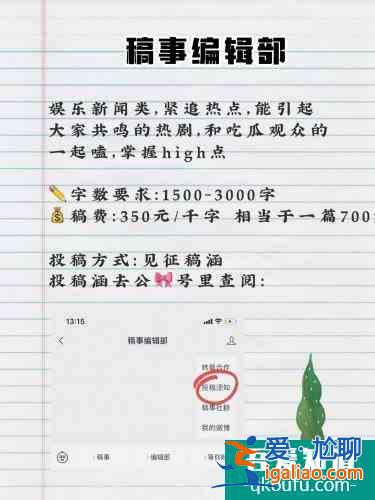 稿事编辑部
娱乐新闻类,紧追热点,能引起
大家共鸣的热剧,和吃瓜观众的
一起嗑,掌握high点
字数要求:1500-3000字
稿费:350元/千字 相当于一篇700
投稿方式:见征稿涵
投稿涵去公号里查阅:
13:15
稿事编辑部
转载合作
投稿须知
稿事社群
我的微博
稿事
编辑部
爱·尬聊
qk5ufu.com